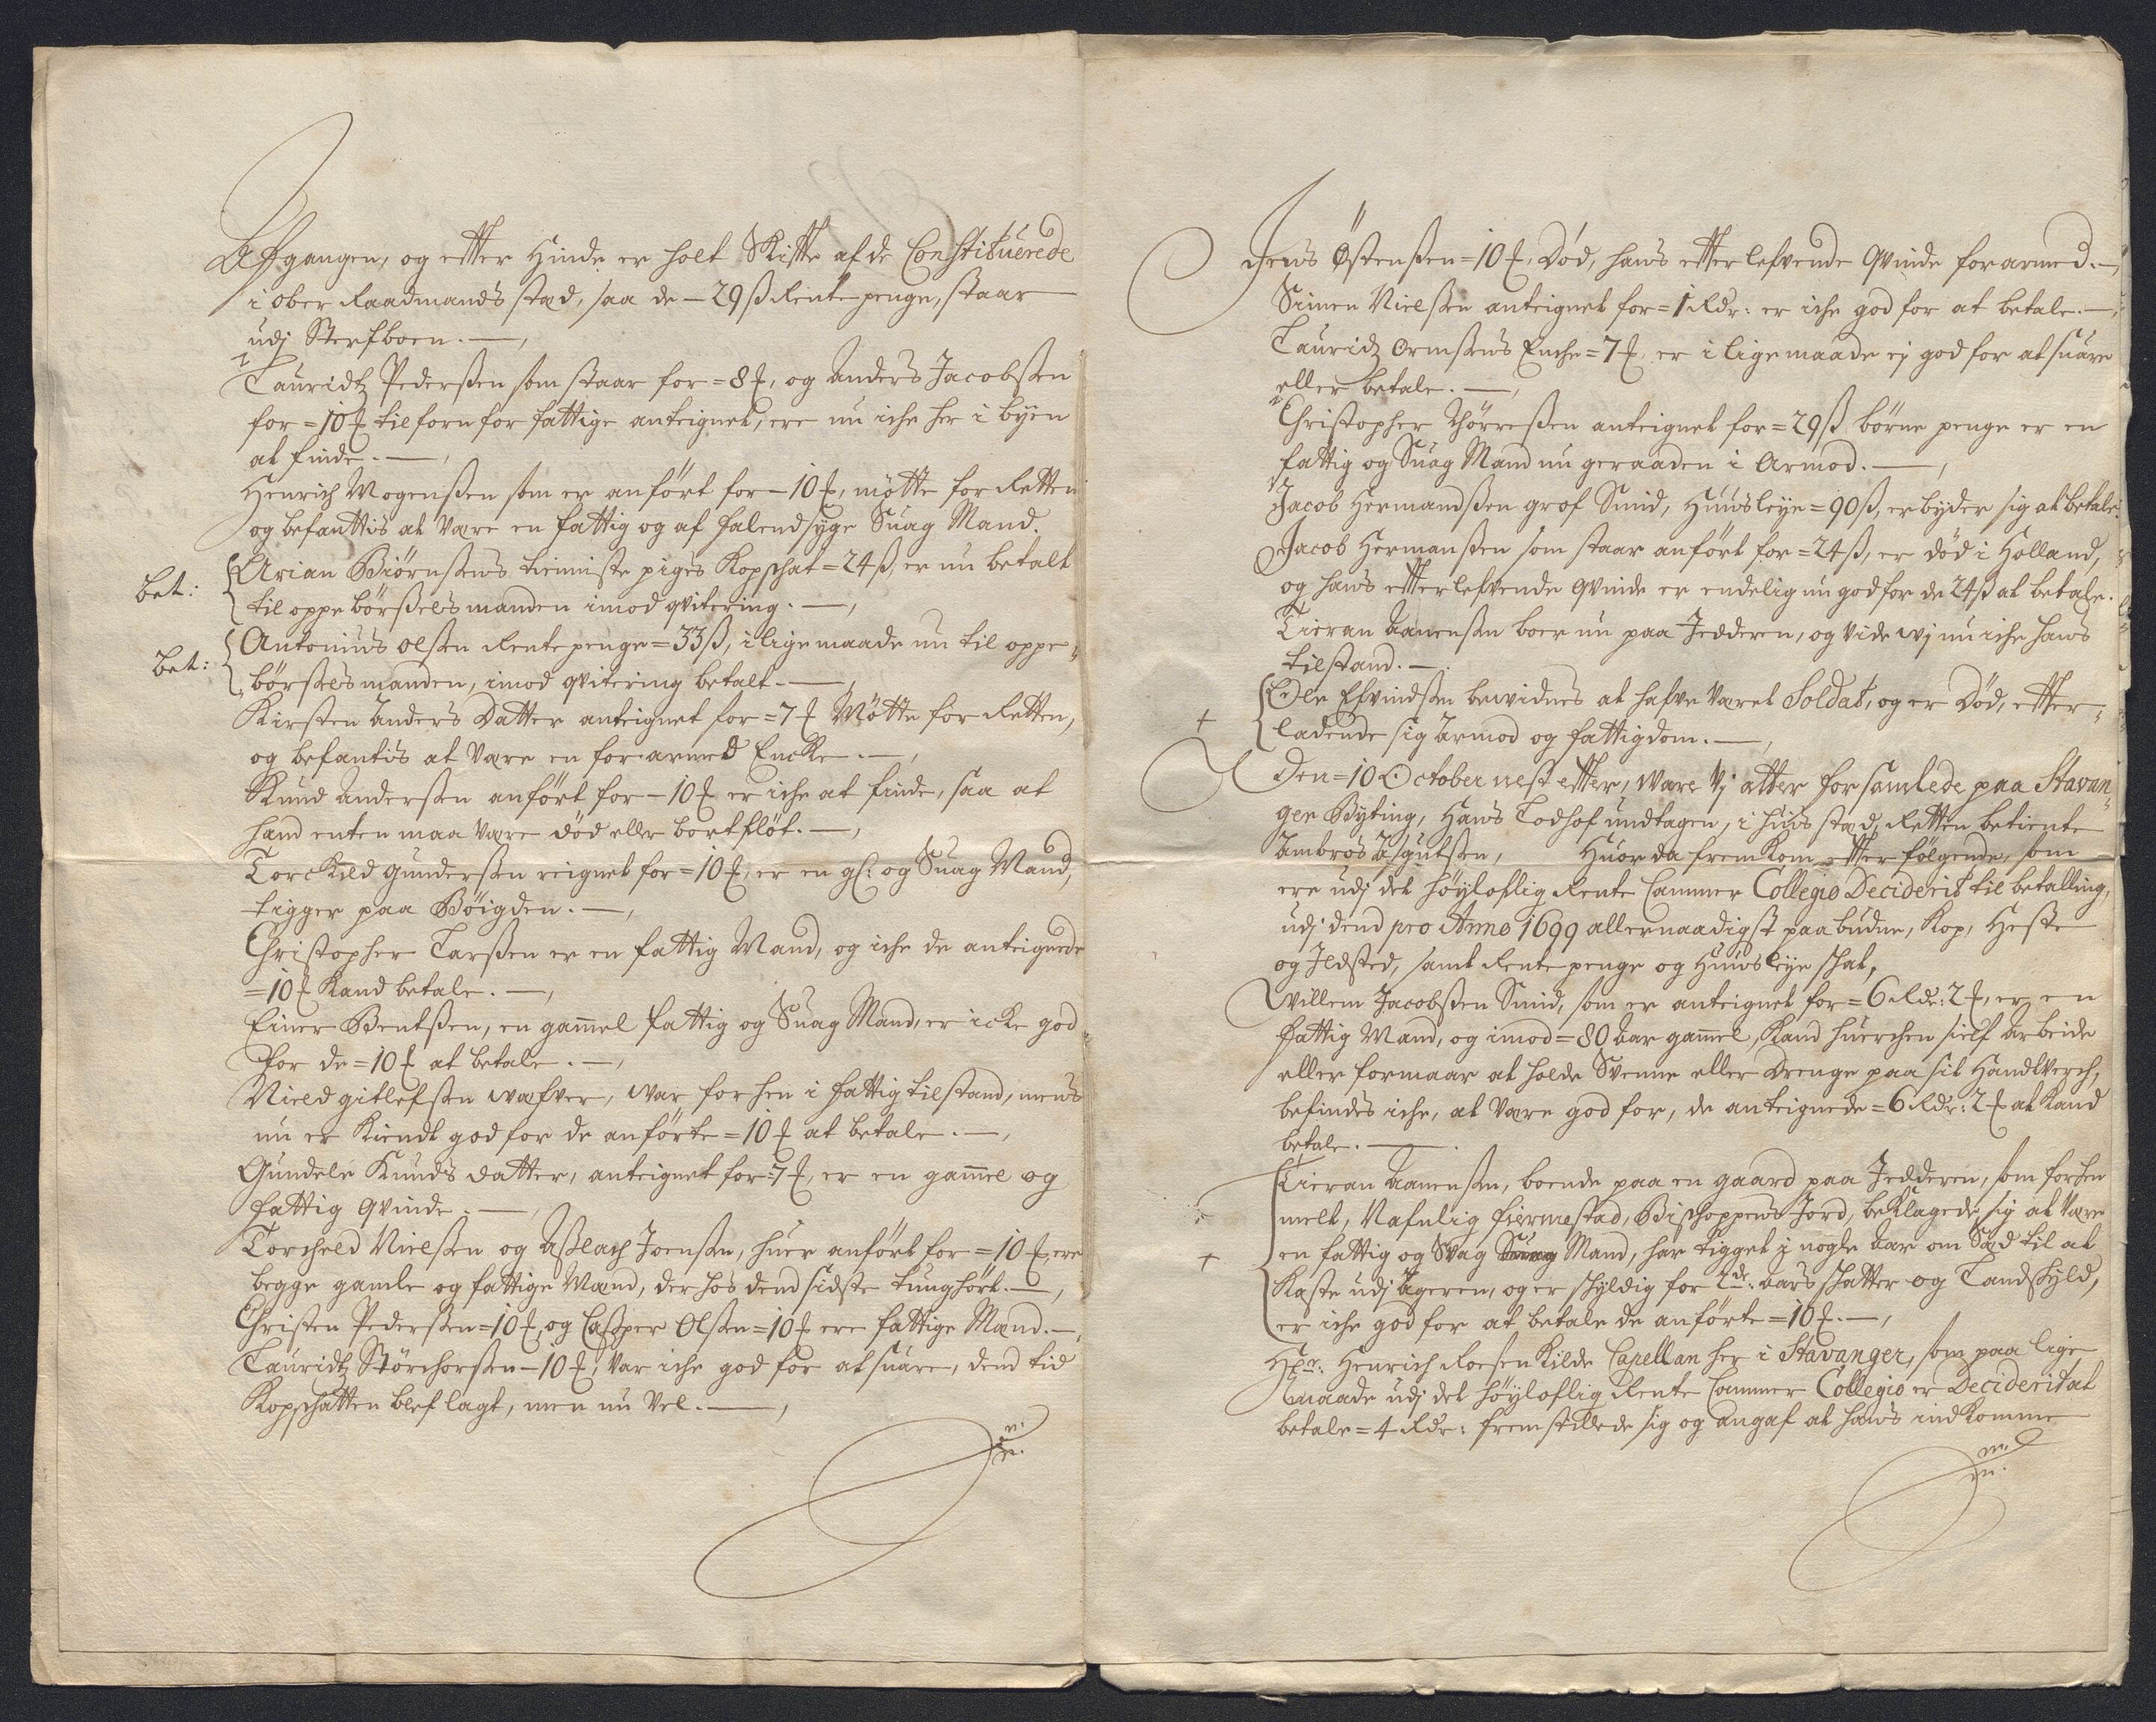 Afgangen, og effter Hinde er holt Skiffte af de Constituerede
i ober Raadmands sted, saa de - 29 ß Rente penge, staar
udj Sterfboen. —,
Lauridtz Pederßen som staar for = 8 ₰, og Anders Jacobßen
for = 10 ₰ tilforn for fattige anteignet, ere nu iche her i byen
at finde. —,
Henrich Mogenßen som er anført for - 10 ₰, møtte for Retten
og befanttis at være en fattig og af falendsyge Suag Mand.
Arian Biørnsens tienniste piges Kopschat = 24 ß, er nu betalt
bet:
til oppebørßels manden imod qvitering. —,
Antonius Olßen Rente penge = 33 ß, i lige maade nu til oppe-
bet:
børßels manden, imod qvitering betalt. —,
Kirsten Anders Datter anteignet for = 7 ₰ Møtte for Retten,
og befantis at være en forarmed Encke. —,
Knud Anderßen anført for - 10 ₰ er iche at finde, saa at
hand enten maa være død eller bortfløt. —,
Torckild Gunderßen reignet for = 10 ₰, er en gl: og Suag Mand,
tigger paa Bøigden. —,
Christopher Larßen er en fattig Mand, og iche de anteignede
= 10 ₰ Kand betale. —,
Einer Bentßen, en gam̄el fattig og Suag Mand, er icke god
for de = 10 ₰ at betale. —,
Nield gitlefsen wæfver, war forhen i fattig tilstand, mens
nu er Kiendt god for de anførte = 10 ₰ at betale. —,
Gundele Knuds datter, anteignet for = 7 ₰, er en gam̄el og
fattig Qvinde. —,
Torcheld Nielßen og Aßlach Joenßen, huer anført for = 10 ₰, ere
begge gamle og fattige Mænd, der hos dend sidste tunghørt. —,
Christen Pederßen = 10 ₰, og Casper Olßen = 10 ₰ ere fattige Mænd. —,
Lauridtz Størchorßen - 10 ₰, var iche god for at suare, dend tid
Kopschatten blef lagt, men nu vel. —,
Jens Østenßen = 10 ₰, død, hans effterlefvende Qvinde forarmed. —,
Simen Nielßen anteignet for = 1 Rdr: er iche god for at betale. —,
Lauridz Ormsens Enche = 7 ₰, er i lige maade ej god for at suare
eller betale. —,
Christopher Thørreßen anteignet for = 29 ß børne penge er en
fattig og Suag Mand nu geraaden i Armod. —,
Jacob Hermandßen grof Smid, Huusleye = 90 ß, erbyder sig at betale.
Jacob Hermanßen som staar anført for = 24 ß, er død i Holland,
og hans effterlefvende Qvinde er endelig nu god for de 24 ß at betale.
Tieran Aanenßen boer nu paa Jedderen, og vide wj nu iche hans
tilstand. —.
Ole Efvindßen bevidnes at hafve været Soldat, og er Død, effter-
+
ladende sig Armod og fattigdom. —,
Den = 10 October nest effter, ware Vj atter forsamlede paa Stavan-
ger Byting, Hans Todhof undtagen, i huis sted, Retten betiente
Ambros Asgutßen, Huor da fremkom effterfølgende, som
ere udj det høyloflig Rente Cammer Collegio Deciderit til betalling,
udj dend pro Anno 1699 allernaadigst paabudne, Kop, Heste
og Ildsted, samt Rente penge og Huusleye schat,
Willem Jacobßen Smid, som er anteignet for = 6 Rdr: 2 ₰, er en
fattig Mand, og imod = 80 Aar gam̄el, Kand huerchen sielf Arbeide
eller formaar at holde Svenne eller Drenge paa sit Handtverch,
befindes iche, at være god for, de anteignede = 6 Rdr: 2 ₰ at Kand
betale. —.
Tieran Aanenßen, boende paa en gaard paa Jedderen, som forhen
melt, Nafnlig fiermestad, Bischoppens Jord, beklagede sig at være
en fattig og Svag Mand, har tigget j nogle Aar om Sæd til at
+
Kaste udj Ageren, og er schyldig for 2de: Aars schatter og Landschyld,
er iche god for at betale de anførte = 10 ₰. —,
Hr: Henrich Roesenkilde Capellan her i Stavanger, som paa lige
maade udj det høyloflig Rente Cammer Collegio er Deciderit at
betale = 4 Rdr: fremstillede sig og angaf at hans indkomme